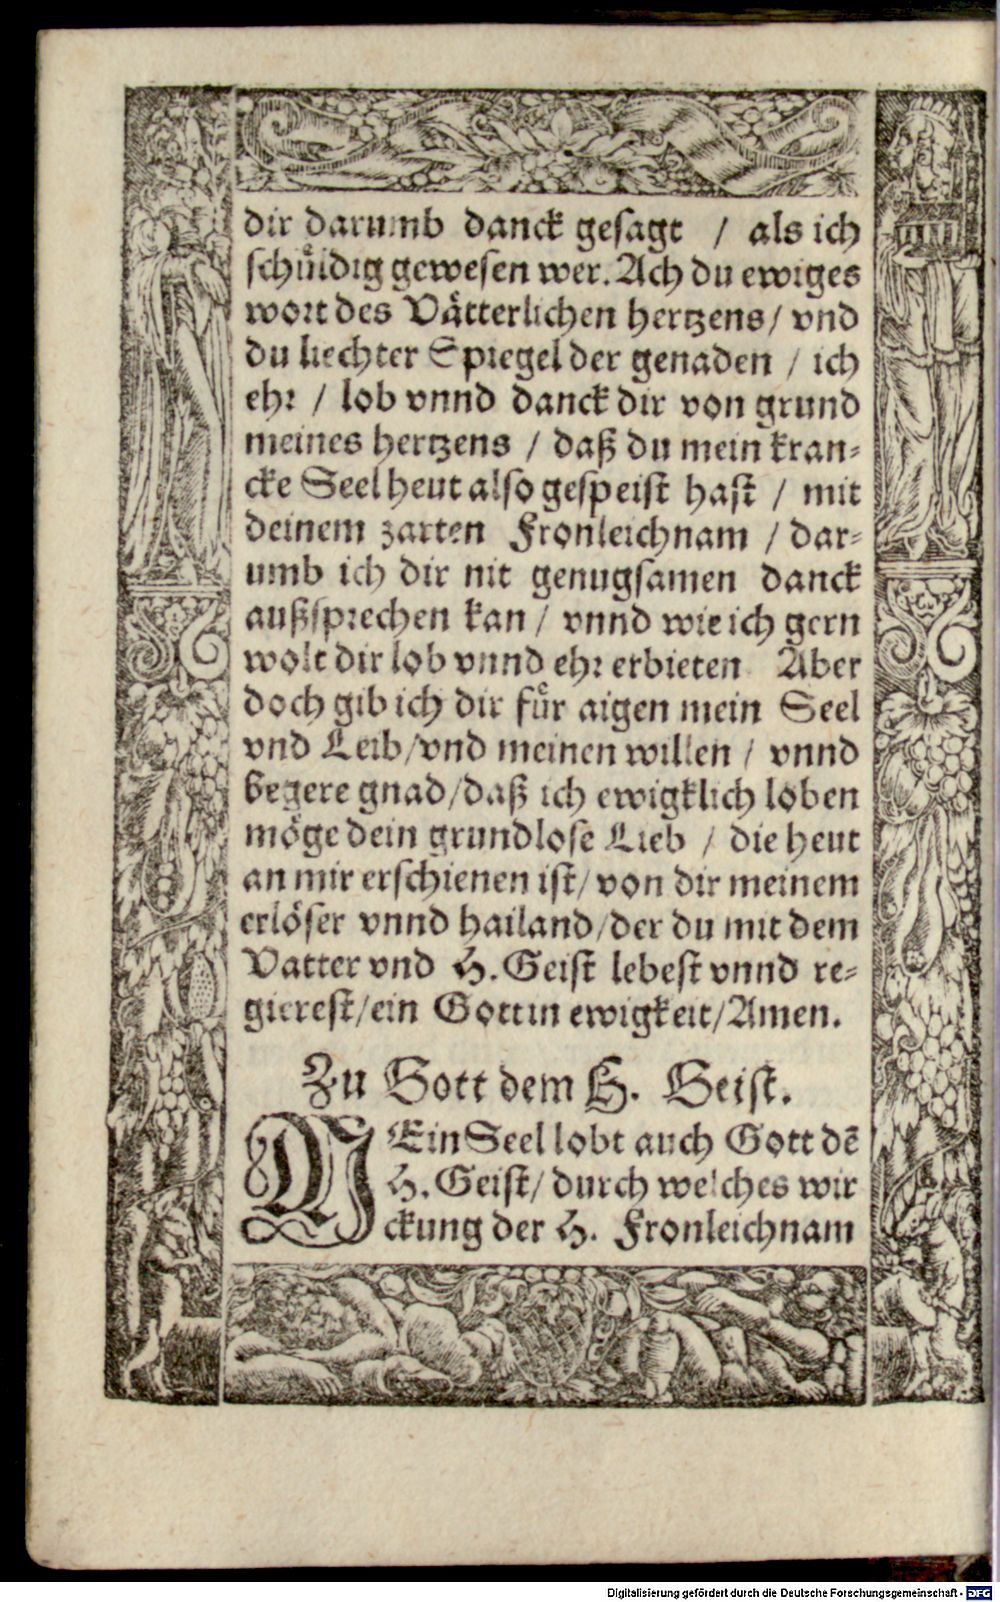 dir darumb danck gesagt / als ich
schuͤldig gewesen wer. Ach du ewiges
wort des Vaͤtterlichen hertzens / vnd
du liechter Spiegel der genaden / ich
ehr / lob vnnd danck dir von grund
meines hertzens / daß du mein kran-
cke Seel heut also gespeist hast / mit
deinem zarten Fronleichnam / dar-
umb ich dir nit genugsamen danck
außsprechen kan / vnnd wie ich gern
wolt dir lob vnnd ehr erbieten Aber
doch gib ich dir fuͤr aigen mein Seel
vnd Leib / vnd meinen willen / vnnd
begere gnad / daß ich ewigklich loben
moͤge dein grundlose Lieb / die heut
an mir erschienen ist / von dir meinem
erloͤser vnnd hailand / der du mit dem
Vatter vnd H. Geist lebest vnnd re-
gierest / ein Gott in ewigkeit / Amen.
Zu Gott dem H. Geist.
MEin Seel lobt auch Gott dē
H. Geist / durch welches wir
ckung der H. Fronleichnam
Digitalisierung gefördert durch die Deutsche Forschungsgemeinschaft - DFG